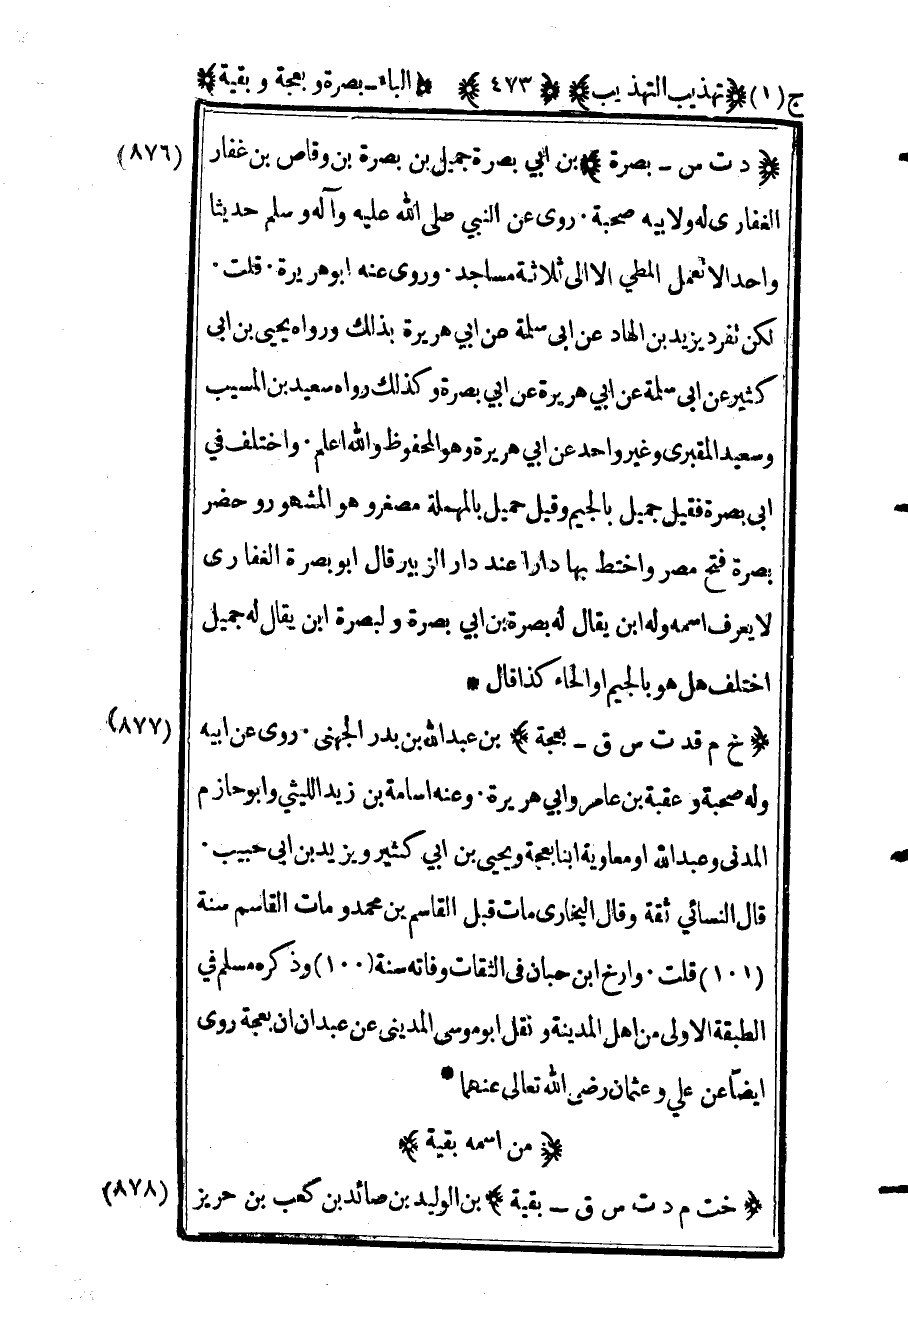 ج (١) ﴿ تهذيب التهذيب ﴾ ﴿ ٤٧٣ ﴾ ﴿ الباء ـ بصرة و بعجة و بقية ﴾
(٨٧٦) ﴿ د ت س ـ بصرة ﴾ بن ابي بصرة جميل بن بصرة بن وقاص بن غفار
الغفارى له ولابيه صحبة ٠ روى عن النبي صلى الله عليه وآله وسلم حديثا
واحدا لا تعمل المطي الا الى ثلاثة مساجد ٠ وروى عنه ابوهريرة ٠ قلت ٠
لكن تفرد يزيد بن الهاد عن ابى سلمة عن ابي هريرة بذلك ورواه يحيى بن ابى
كثير عن ابى سلمة عن ابي هريرة عن ابي بصرة وكذلك رواه سعيد بن المسيب
وسعيد المقبرى وغير واحد عن ابي هريرة وهو المحفوظ والله اعلم ٠ واختلف في
ابى بصرة فقيل جميل بالجيم وقيل حميل بالمهملة مصغر و هو المشهور و حضر
بصرة فتح مصر واختط بها دارا عند دار الزبير قال ابو بصرة الغفارى
لا يعرف اسمه وله ابن يقال له بصرة بن ابي بصرة و لبصرة ابن يقال له جميل
اختلف هل هو بالجيم او الحاء كذا قال *
(٨٧٧) ﴿ خ م قد ت س ق ـ بعجة ﴾ بن عبدالله بن بدر الجهنى ٠ روى عن ابيه
وله صحبة و عقبة بن عامر وابي هريرة ٠ وعنه اسامة بن زيد الليثي وابو حازم
المدنى وعبد الله او معاوية ابنا بعجة ويحيى بن ابي كثير ويزيد بن ابى حبيب ٠
قال النسائي ثقة وقال البخارى مات قبل القاسم بن محمد و مات القاسم سنة
(١٠١) قلت ٠ وارخ ابن حبان فى الثقات وفاته سنة (١٠٠) وذكره مسلم في
الطبقة الاولى من اهل المدينة و نقل ابو موسى المدينى عن عبدان ان بعجة روى
ايضاً عن علي و عثمان رضى الله تعالى عنهما *
﴿ من اسمه بقية ﴾
(٨٧٨) ﴿ خت م د ت س ق ـ بقية ﴾ بن الوليد بن صائد بن كعب بن حريز